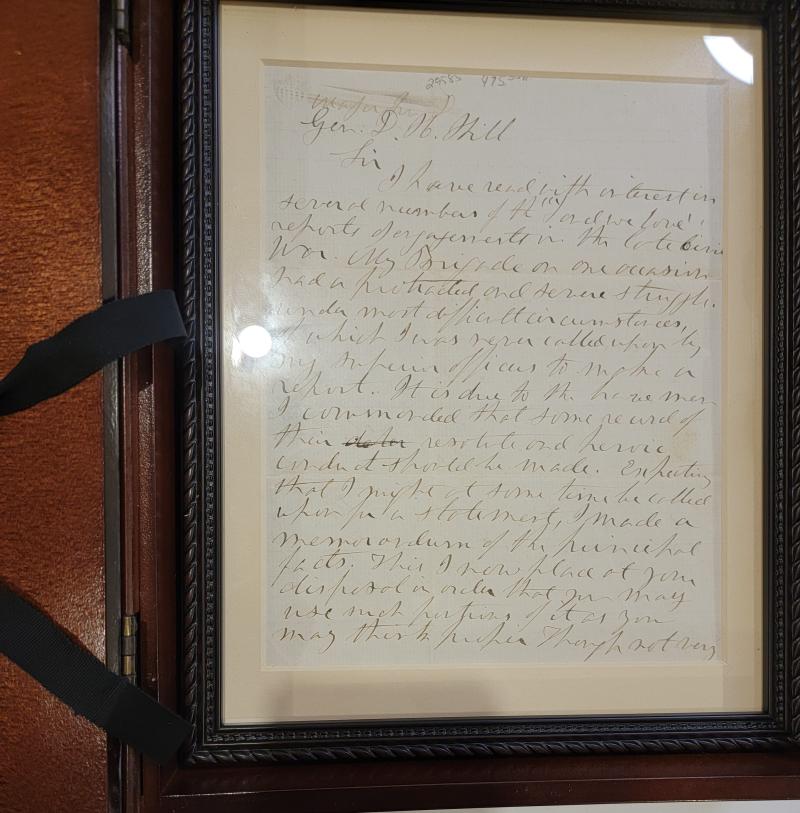 29585 475
Major Gen D
Gen. D. H. Hill
Sir
I have read with interest in
several numbers of the "Land we love"
reports of engagements in the late Civil
War. My Brigade on one occasion
had a protracted and severe struggle
under most difficult circumstances,
of which I was never called upon by
my superior officers to make a
report. It is due to the brave men
I commanded that some record of
their resolute and heroic
conduct should be made. Expecting
that I might at some time be called
upon for a statement, I made a
memorandum of the principal
facts. This I now place at your
disposal in order that you may
use such portions of it as you
may think proper Though not very